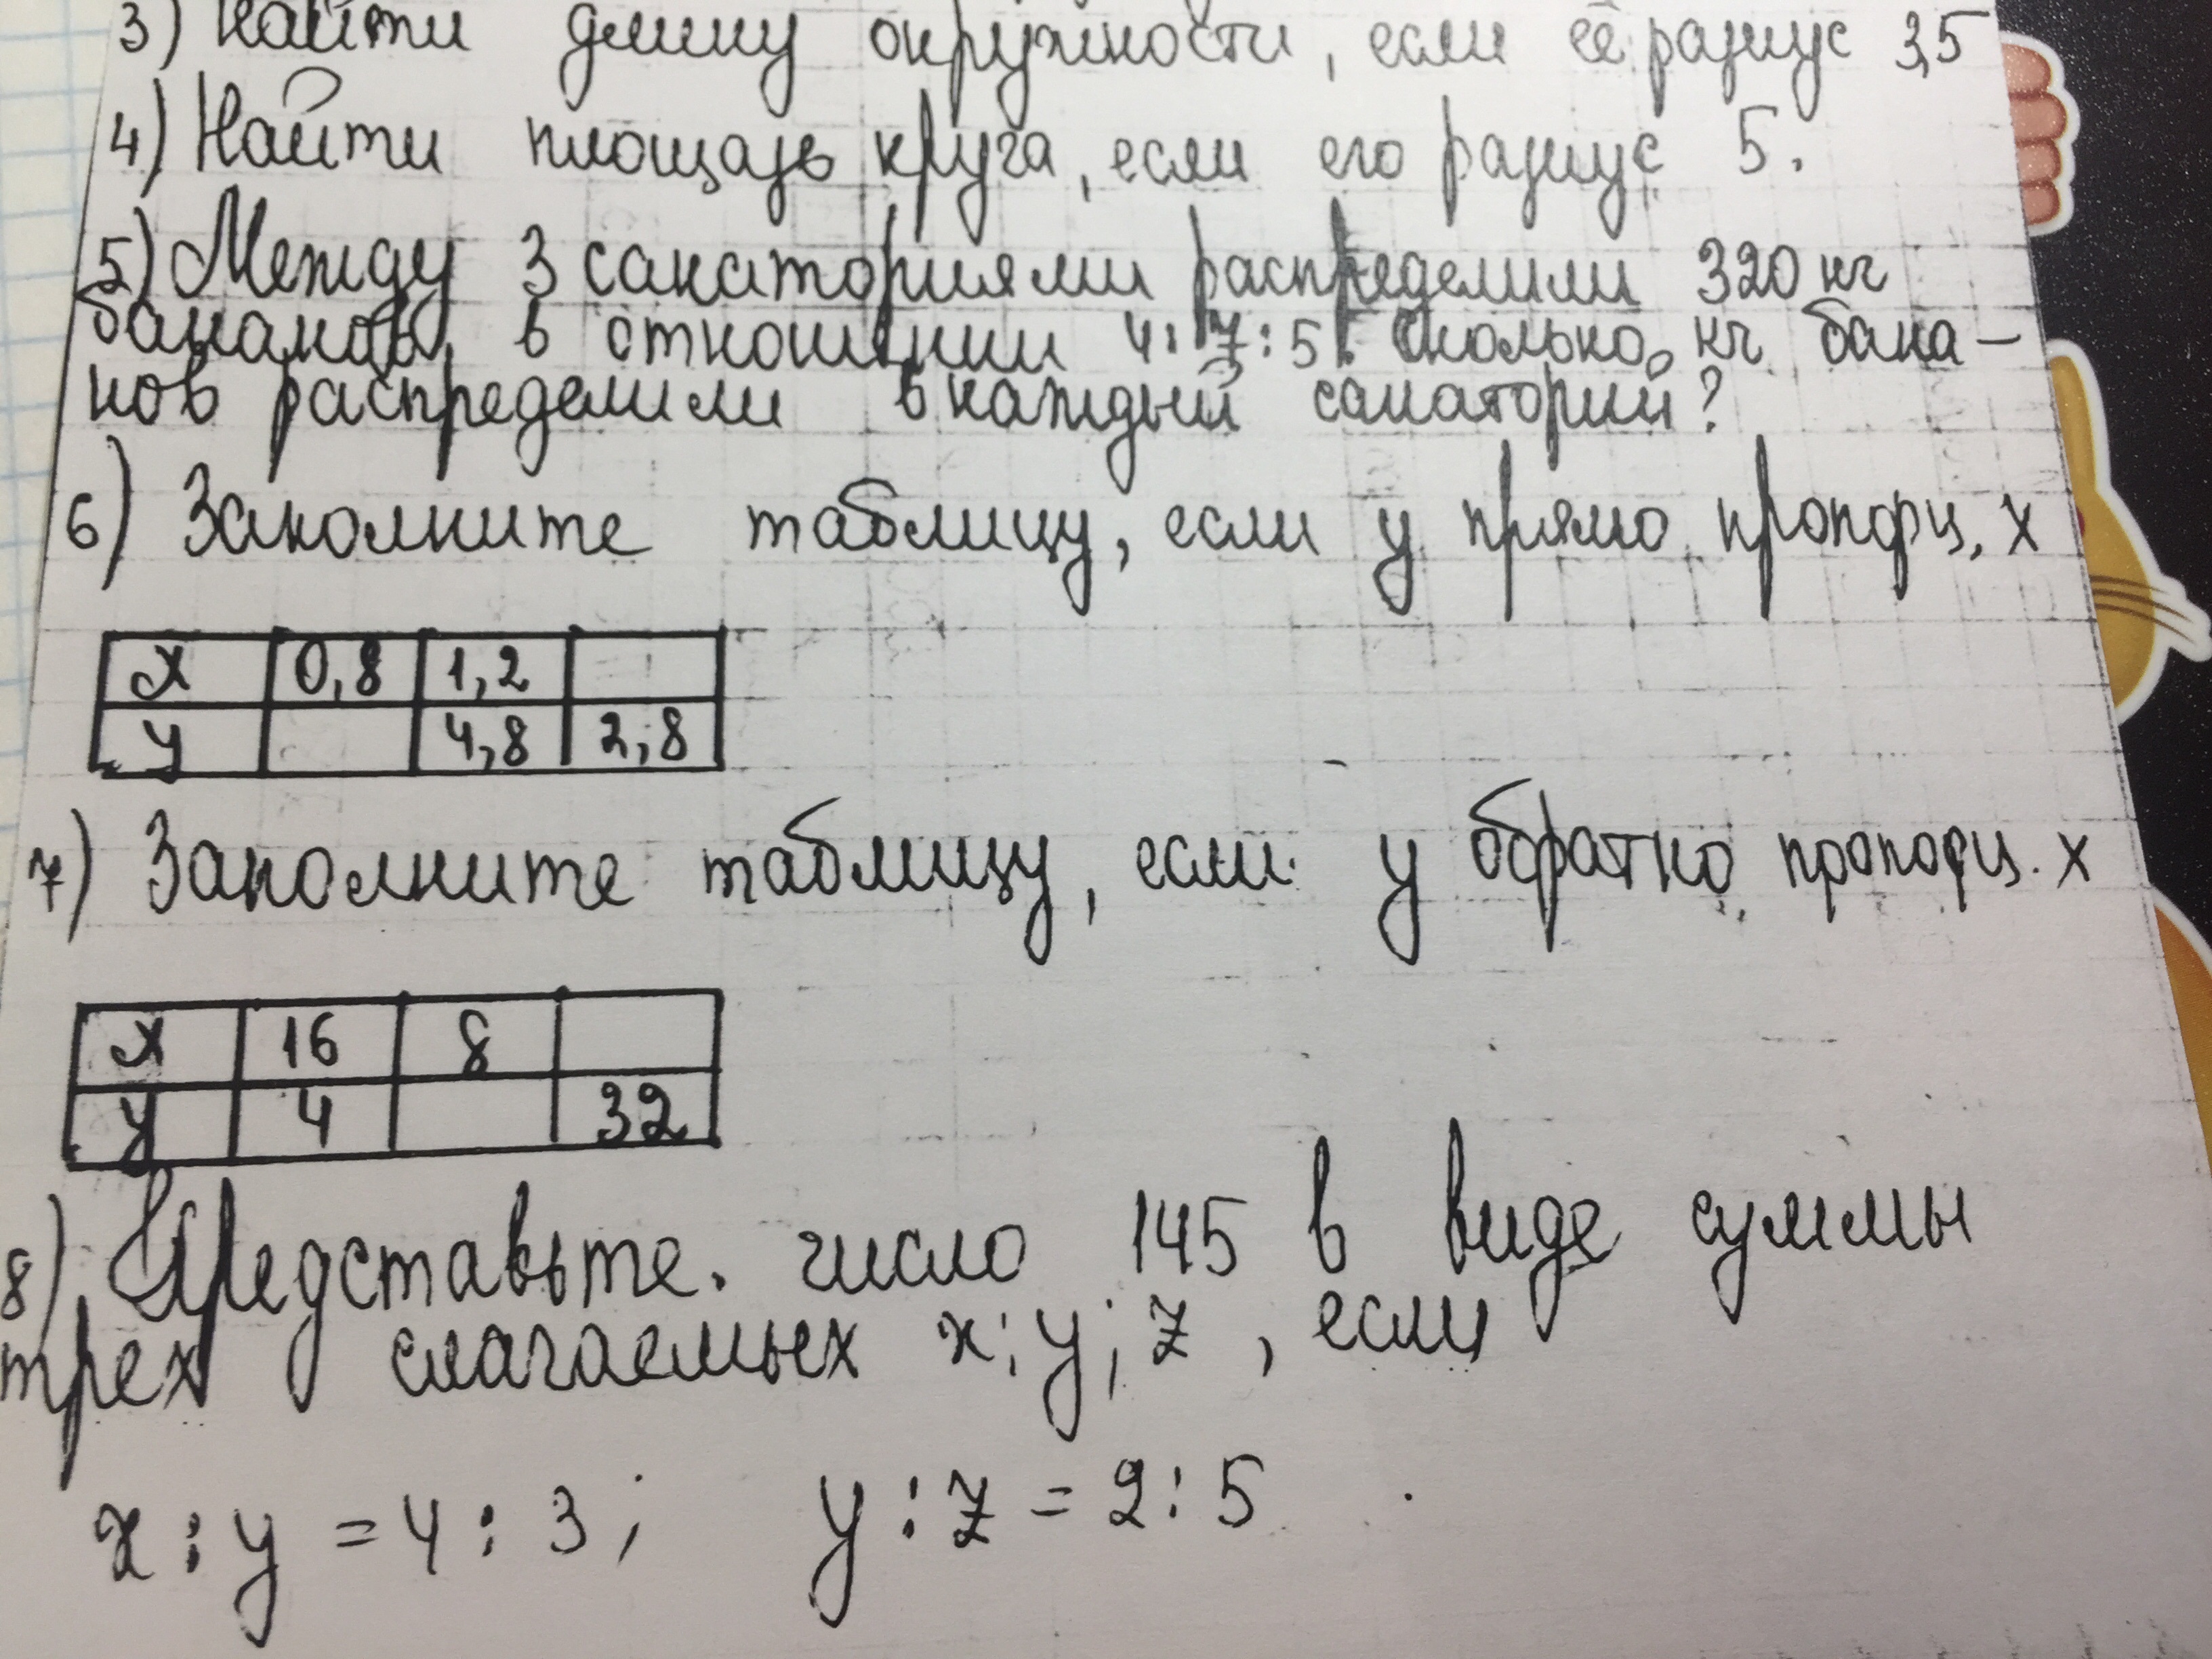 3) Найти длину окружности, если её радиус 3,5
4) Найти площадь круга, если его радиус 5.
5) Между 3 санаториями распределили 320 кг
бананов в отношении 4:7:5. Сколько кг бана-
нов распределили в каждый санаторий?
6) Заполните таблицу, если у прямо пропорц. х
х 0,8 1,2
у 4,8 2,8
7) Заполните таблицу, если у обратно пропорц. х
х 16 8
у 4 32
8) Представьте число 145 в виде суммы
трех слагаемых x; y; z, если
x : y = 4 : 3; y : z = 2 : 5